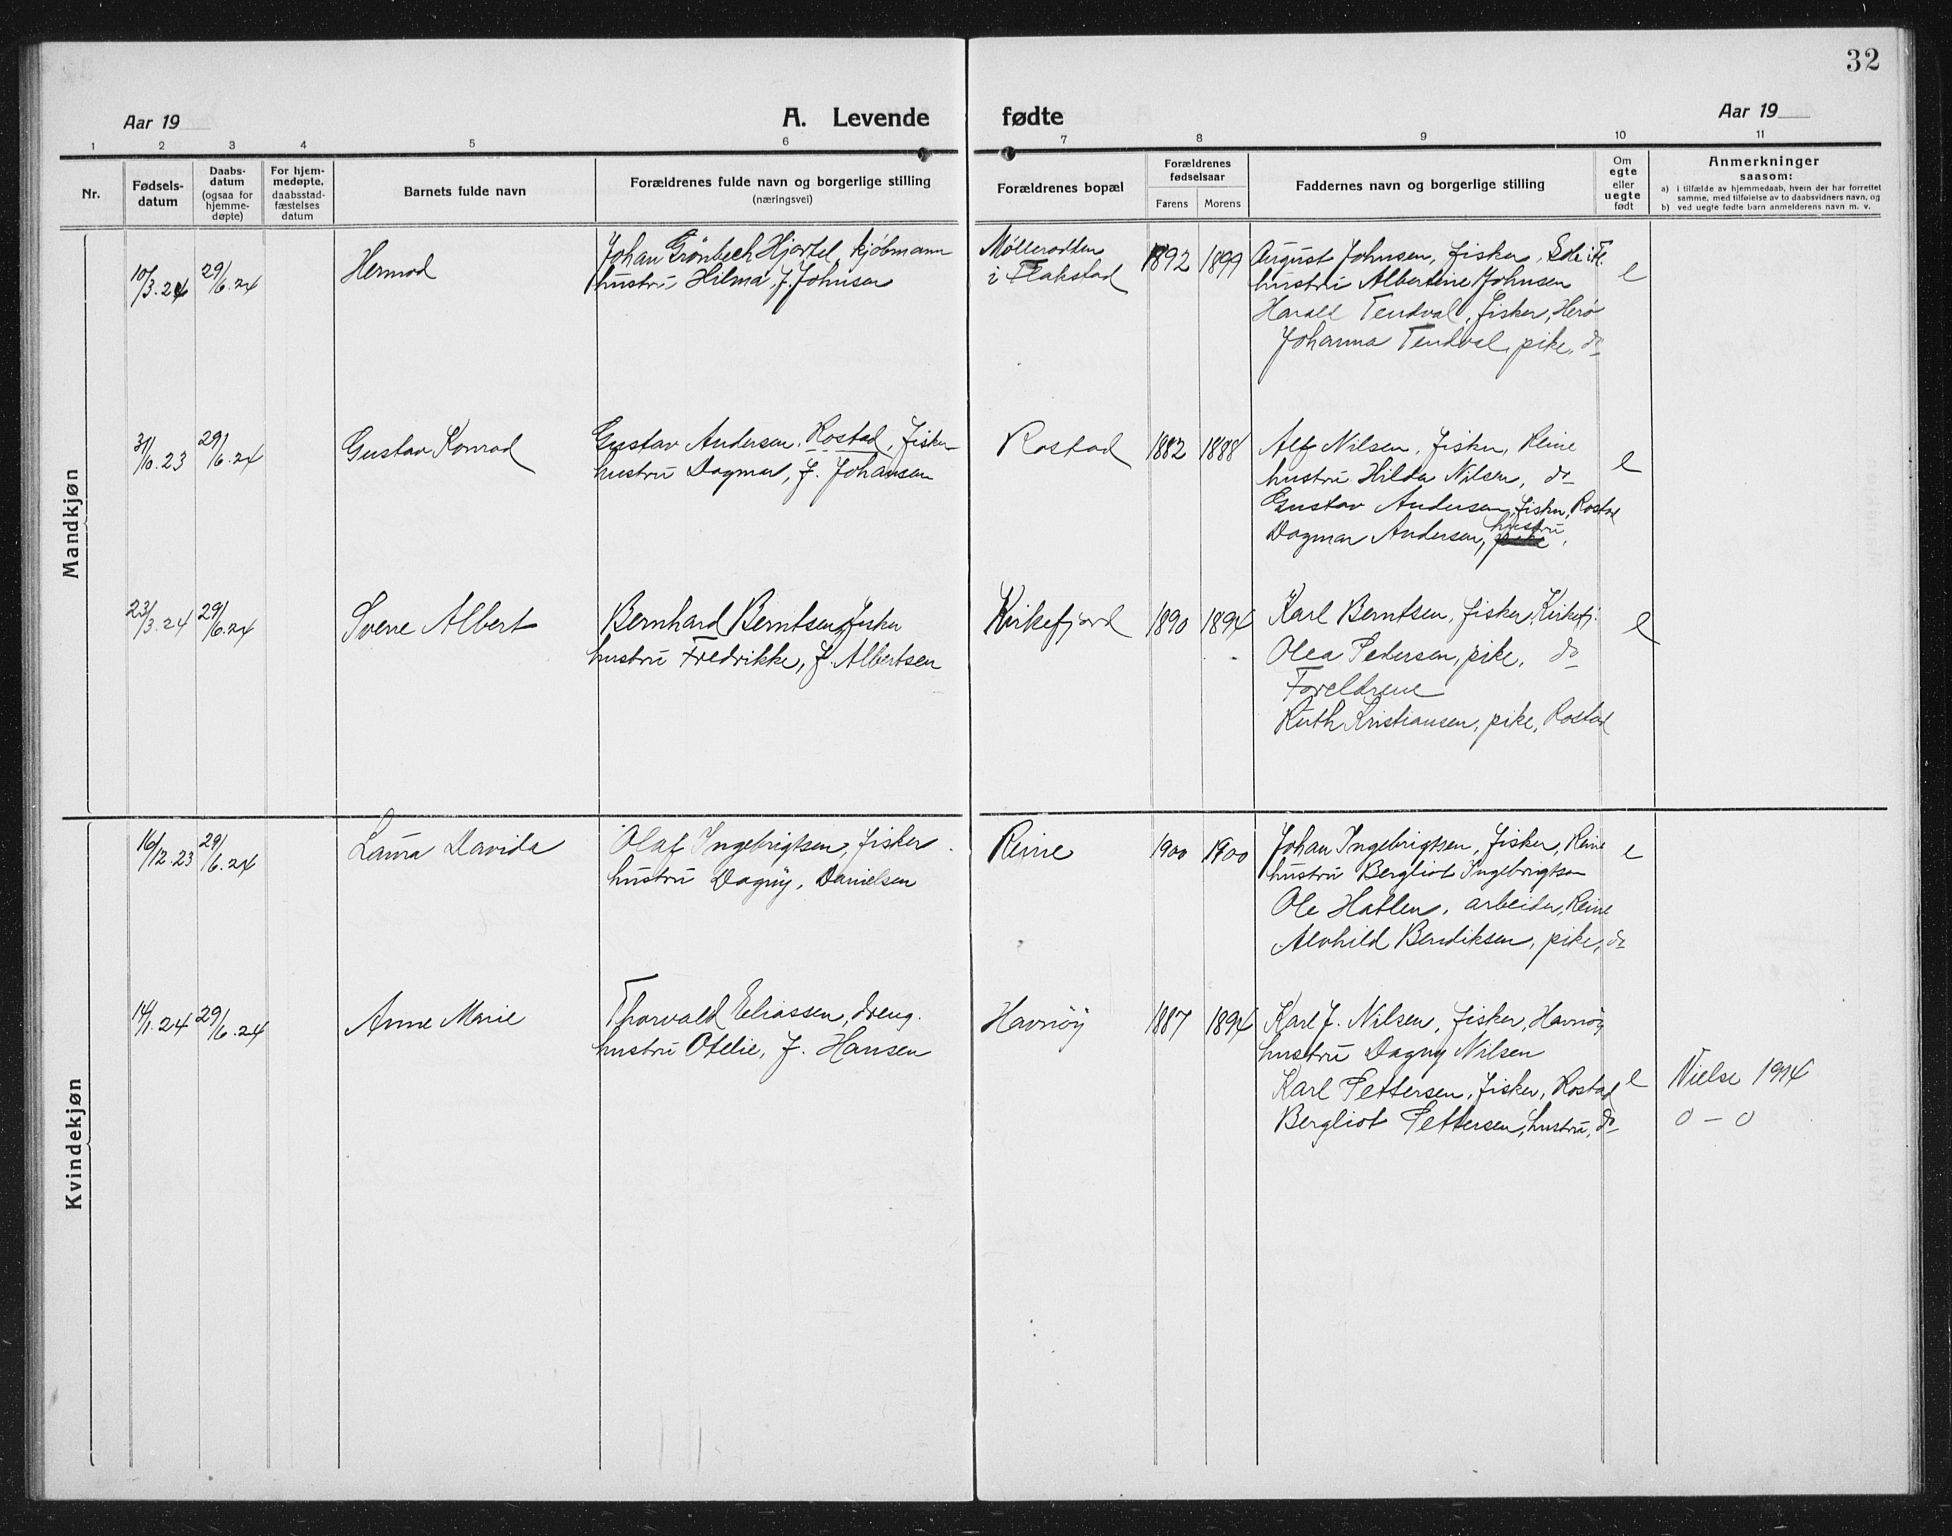 32
Aar 19
A. Levende
fødte
Aar 19
1 2 3 4 5 6 7 8 9 10 11
Nr.
Fødsels-
datum
Daabs-
datum
(ogsaa for
hjemme-
døpte)
For hjem-
medøpte,
daabsstad-
fæstelses
datum
Barnets fulde navn
Forældrenes fulde navn og borgerlige stilling
(næringsvei)
Forældrenes bopæl
Forældrenes
fødselsaar
Farens Morens
Faddernes navn og borgerlige stilling
Om
egte
eller
uegte
født
Anmerkninger
saasom:
a) i tilfælde av hjemmedaab, hvem der har forrettet
samme, med tilføielse av to daabsvidners navn, og
b) ved uegte fødte barn anmelderens navn m. v.
Mandkjøn
10/3.24 29/6.24 Hermod
Johan Grönbech Hjertel, kjøbmann
hustru Hilma, f. Johnsen
i Flakstad
1892 1899
August Johnsen, fisker,
hustru Albertine Johnsen
Harald Tendval, fisker, Herø
Johanna Tendval, pike, do
e
31/10.23 29/6.24 Gustav Konrad
Gustav Andersen, Rostad, fisker
hustru Dagmar, f. Johansen
Rostad
1882 1888
Alf Nilsen, fisker, Reine
hustru Hilda Nilsen, do
Gustav Andersen, fisker, Rostad
hustru
Dagmar Andersen, pike.
e
23/3.24 29/6.24 Sverre Albert
Bernhard Berntsen, fisker
hustru Fredrikke, f. Albertsen
Kirkefjord
1890 1894
Karl Berntsen, fisker, Kirkefj.
Olea Pedersen, pike, do
Foreldrene
Ruth Kristiansen, pike, Rostad
e
Kvindekjøn
16/12.23 29/6.24 Laura Davida
Olaf Ingebrigtsen, fisker.
hustru Dagny, Danielsen
Reine
1900 1900
Johan Ingebrigtsen, fisker, Reine
hustru Bergliot Ingebrigtsen
Ole Hatlen, arbeider, Reine
Alvhild Bendiksen, pike, do
e
14/1.24 29/6.24 Anne Marie
Thorvald Eliassen, dreng.
hustru Otelie, f. Hansen
Havnøy
1887 1894
Karl J. Nilsen, fisker, Havnøy
hustru Dagny Nilsen
Karl Pettersen, fisker, Rostad
Bergliot Pettersen, hustru, do
e
1914
0 – 0